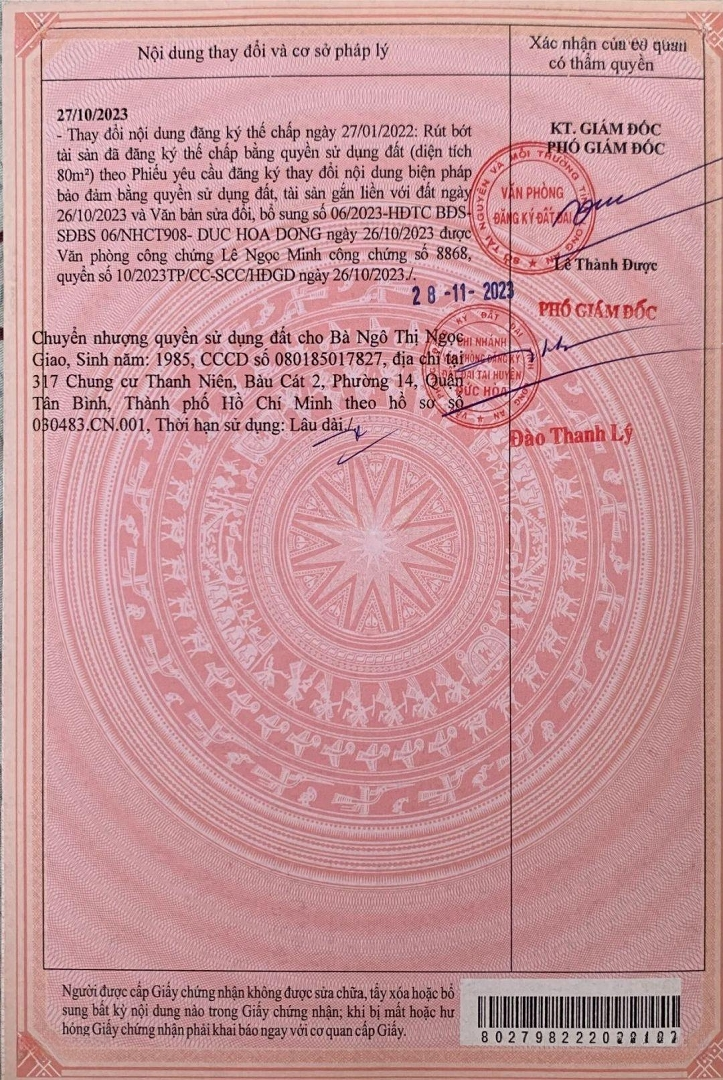 Nội dung thay đổi và cơ sở pháp lý
Xác nhận của cơ quan
có thẩm quyền
27/10/2023
- Thay đổi nội dung đăng ký thế chấp ngày 27/01/2022: Rút bớt
tài sản đã đăng ký thế chấp bằng quyền sử dụng đất (diện tích
80m²) theo Phiếu yêu cầu đăng ký thay đổi nội dung biện pháp
bảo đảm bằng quyền sử dụng đất, tài sản gắn liền với đất ngày
26/10/2023 và Văn bản sửa đổi, bổ sung số 06/2023-HĐTC BĐS-
SĐBS 06/NHCT908- DUC HOA DONG ngày 26/10/2023 được
Văn phòng công chứng Lê Ngọc Minh công chứng số 8868,
quyển số 10/2023TP/CC-SCC/HĐGD ngày 26/10/2023./.
KT. GIÁM ĐỐC
PHÓ GIÁM ĐỐC
VĂN PHÒNG
ĐĂNG KÝ ĐẤT ĐAI
Lê Thành Được
28-11-2023
Chuyển nhượng quyền sử dụng đất cho Bà Ngô Thị Ngọc
Giao, Sinh năm: 1985, CCCD số 080185017827, địa chỉ tại
317 Chung cư Thanh Niên, Bàu Cát 2, Phường 14, Quận
Tân Bình, Thành phố Hồ Chí Minh theo hồ sơ số
030483.CN.001, Thời hạn sử dụng: Lâu dài./.
PHÓ GIÁM ĐỐC
CHI NHÁNH
VĂN PHÒNG ĐĂNG KÝ
ĐẤT ĐAI TẠI HUYỆN
ĐỨC HÒA
Đào Thanh Lý
Người được cấp Giấy chứng nhận không được sửa chữa, tẩy xóa hoặc bổ
sung bất kỳ nội dung nào trong Giấy chứng nhận; khi bị mất hoặc hư
hỏng Giấy chứng nhận phải khai báo ngay với cơ quan cấp Giấy.